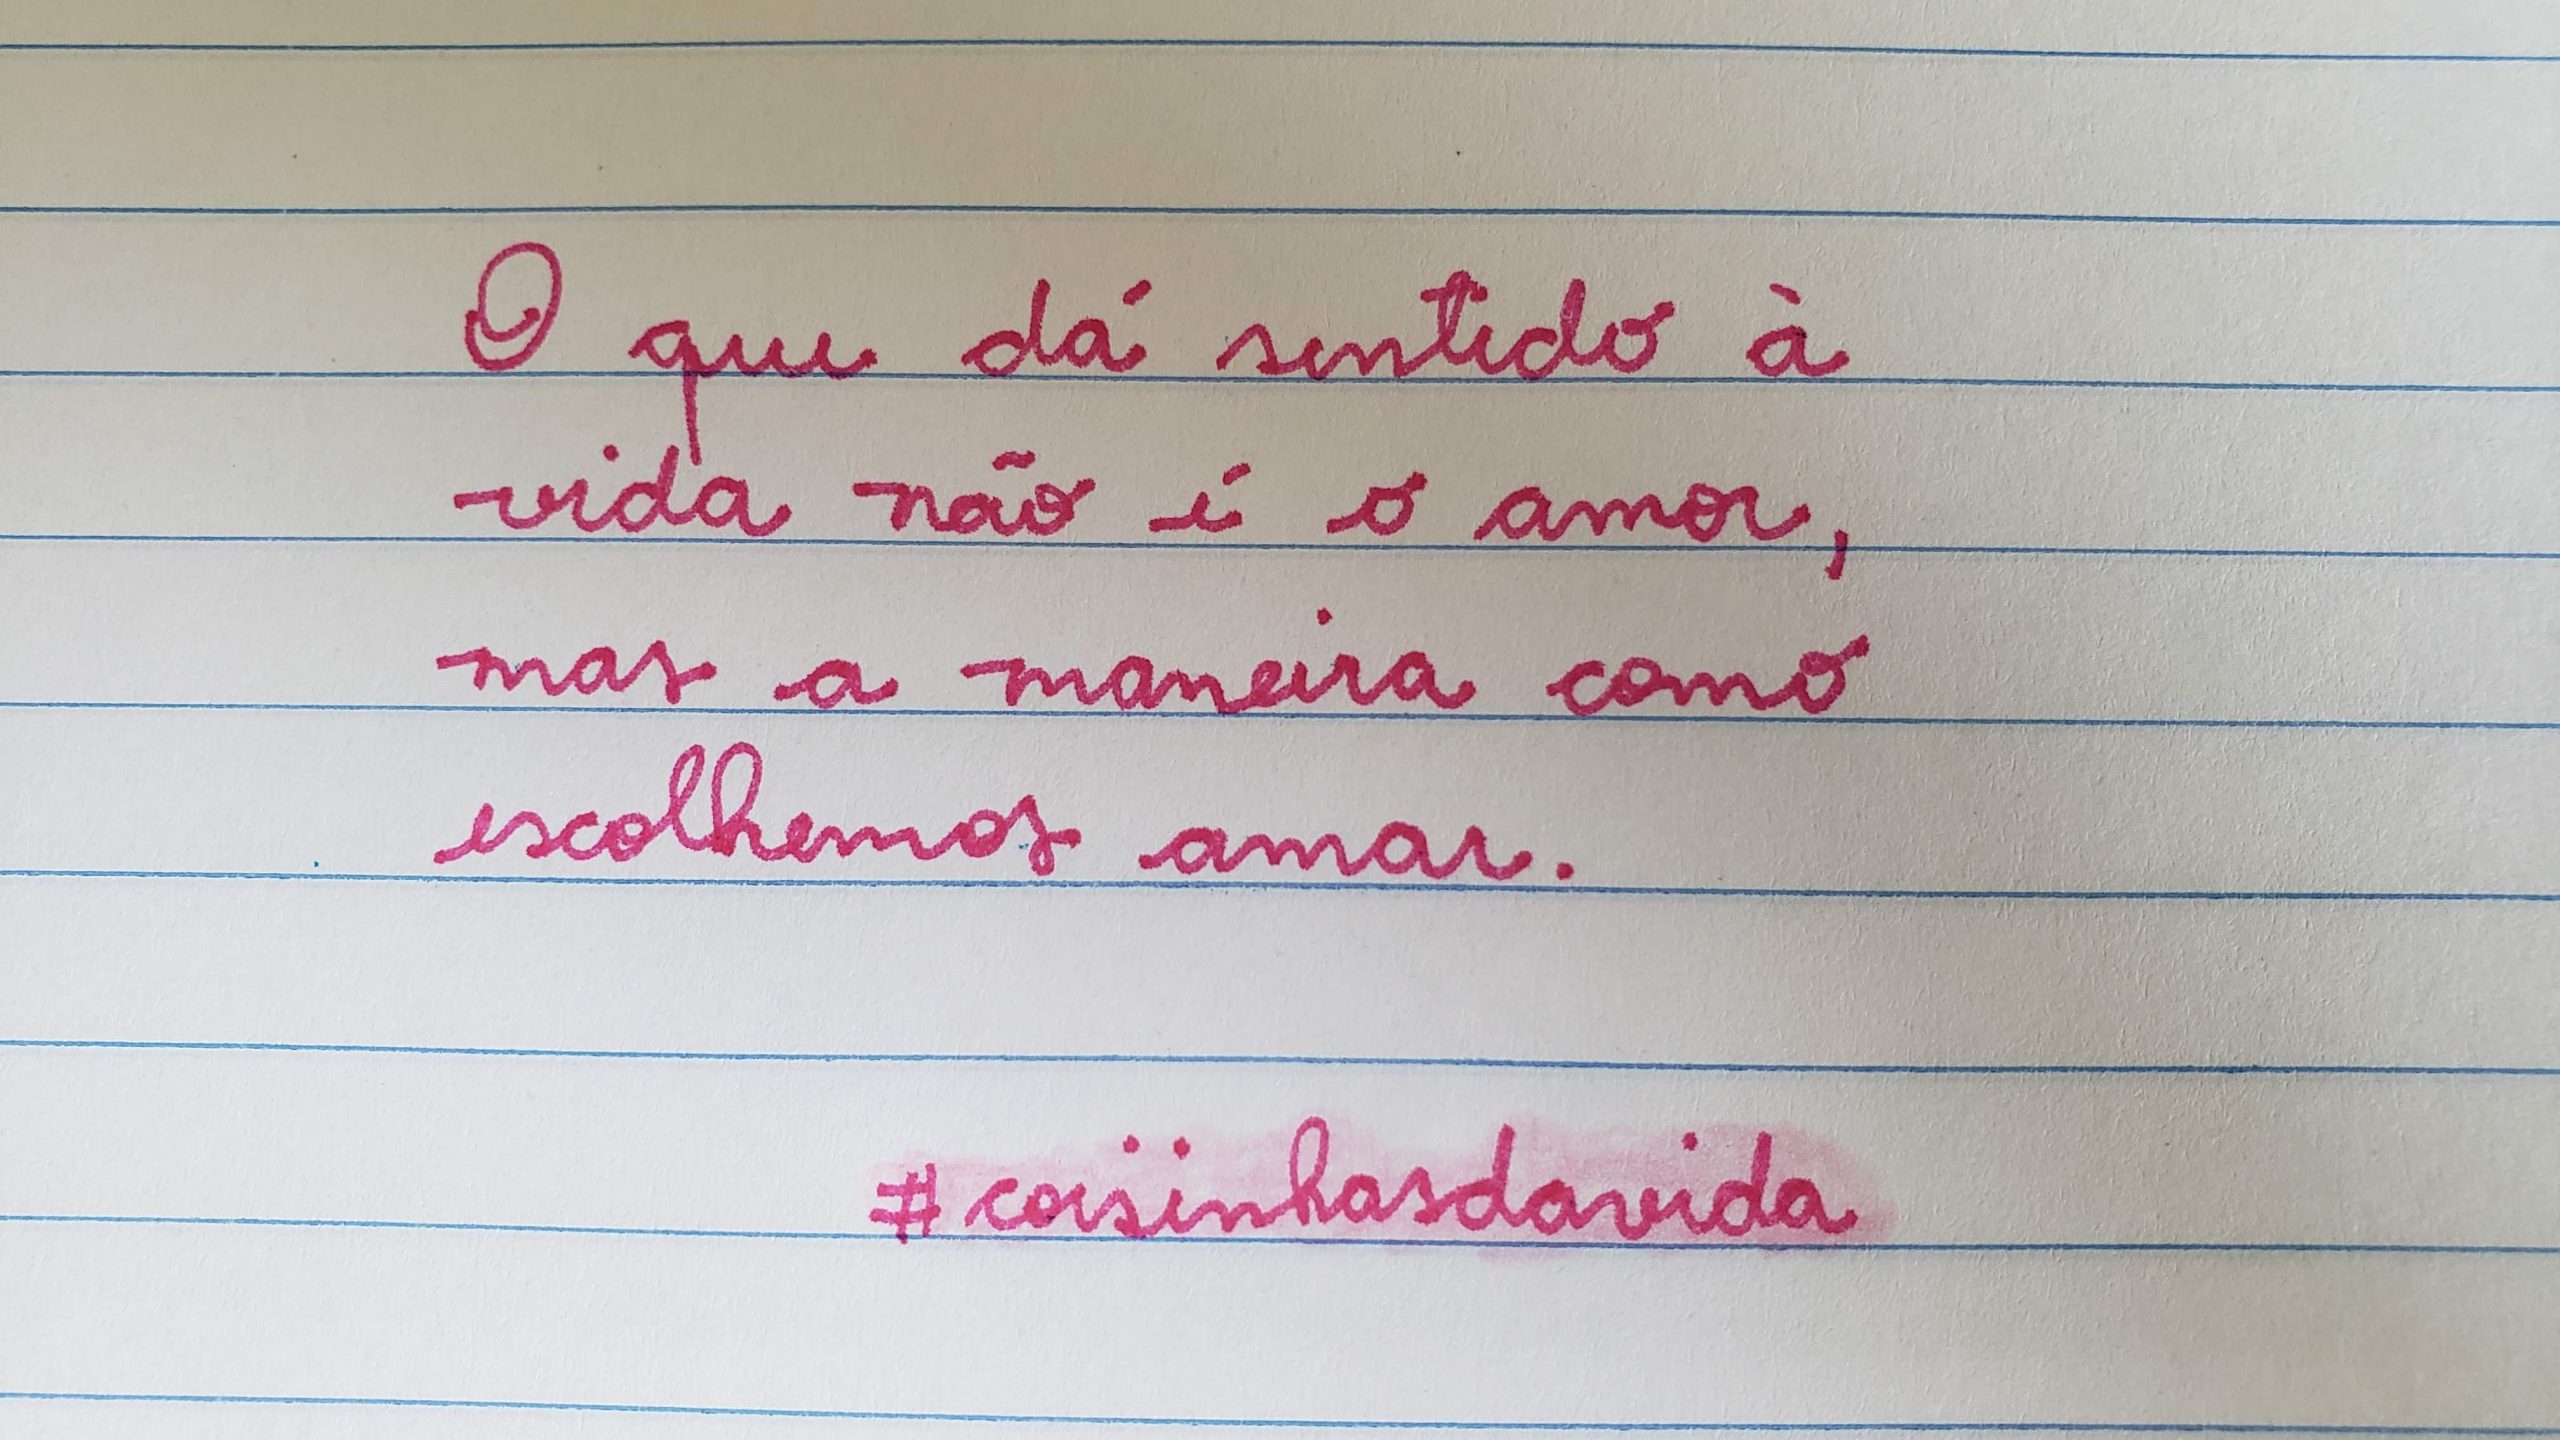 O que dá sentido à
vida não é o amor,
mas a maneira como
escolhemos amar.
#coisinhasdavida